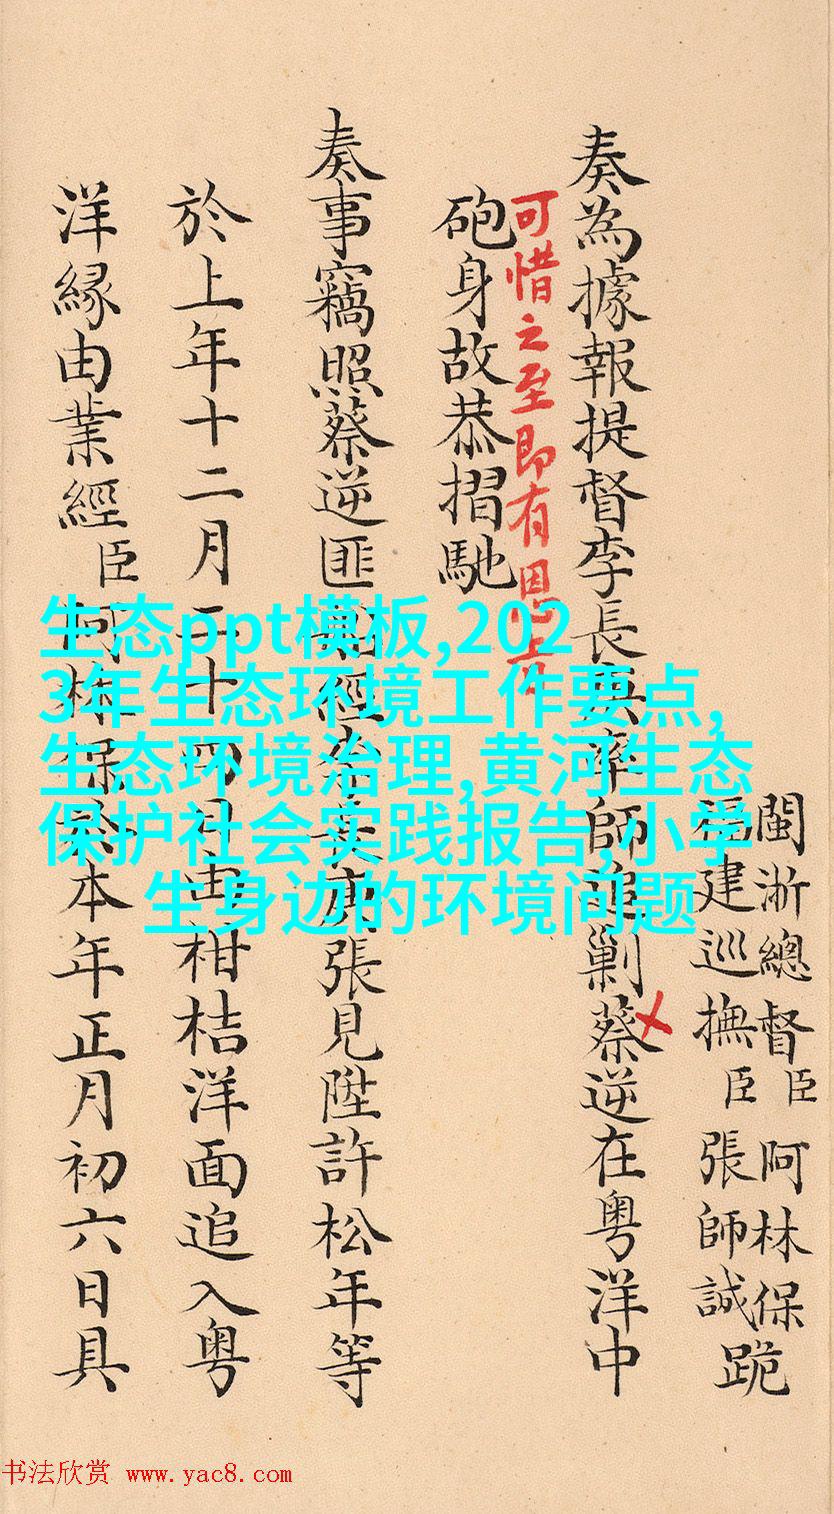 閩浙總督臣阿林保
福建巡撫臣張師誠跪
奏為據報提督李長庚率師追剿蔡逆在粤洋中
可惜之至即有恩旨
砲身故恭摺馳
奏事竊照蔡逆匪船經李長庚張見陞許松年等
於上年十二月二十四日由柑桔洋面追入粤
洋緣由業經臣阿林保於本年正月初六日具
生态ppt模板,202
3年生态环境工作要点,
生态环境治理,黄河生态
保护社会实践报告,小学
生身边的环境问题
书法欣赏 www.yac8.com